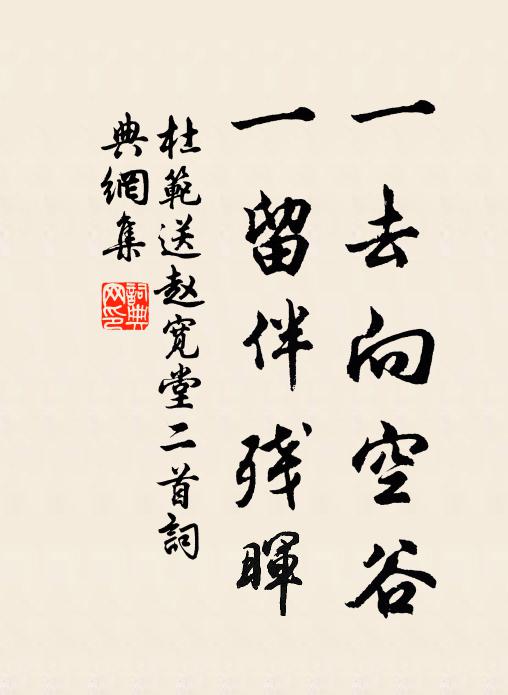 一去向空谷
一留伴残暉
杜範送赵宽堂二首詞
典網集
詞典
网印